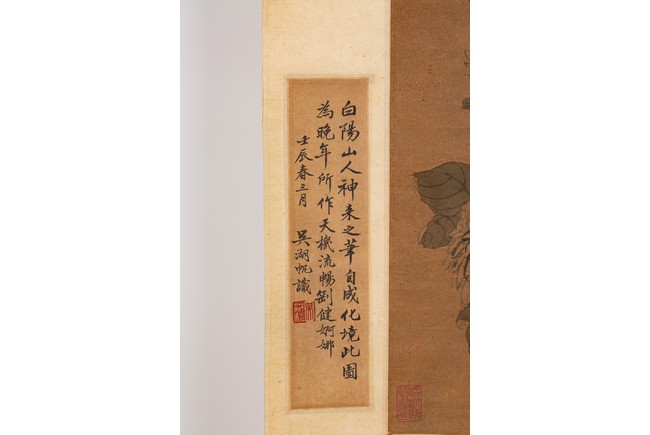 白陽山人神来之筆自成化境此圖
為晚年所作天機流暢剛健婀娜
壬辰春三月 吳湖帆識